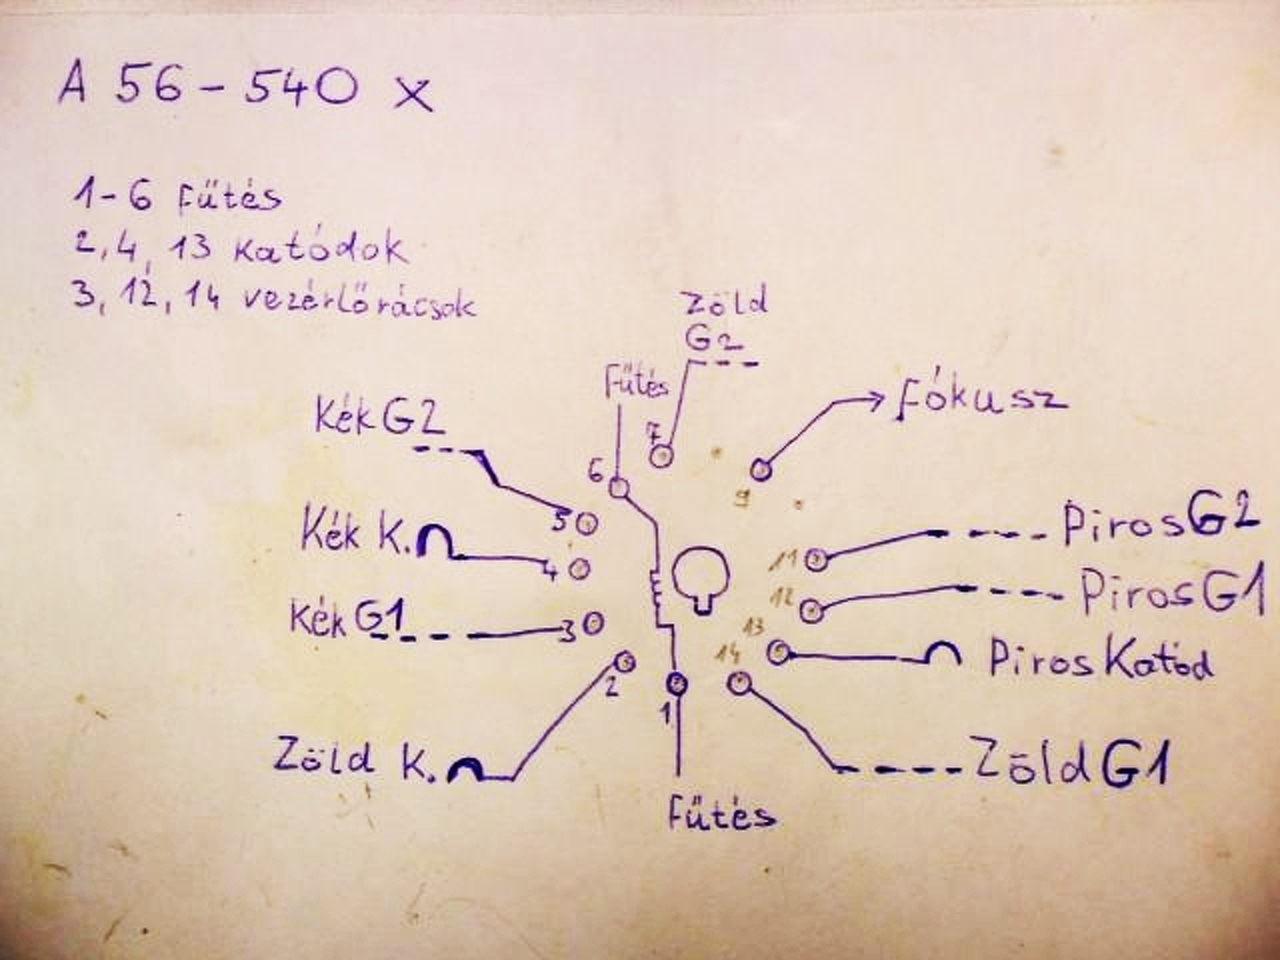 A 56-540 X
1-6 Fűtés
2,4, 13 Katódok
3, 12, 14 vezérlőrácsok
Zöld
G2
Fűtés
Fókusz
Kék G2
7
6
9
5
Piros G2
Kék K.
11
4
Piros G1
12
Kék G1
3
13
Piros Katód
14
2
1
Zöld K.
Zöld G1
Fűtés